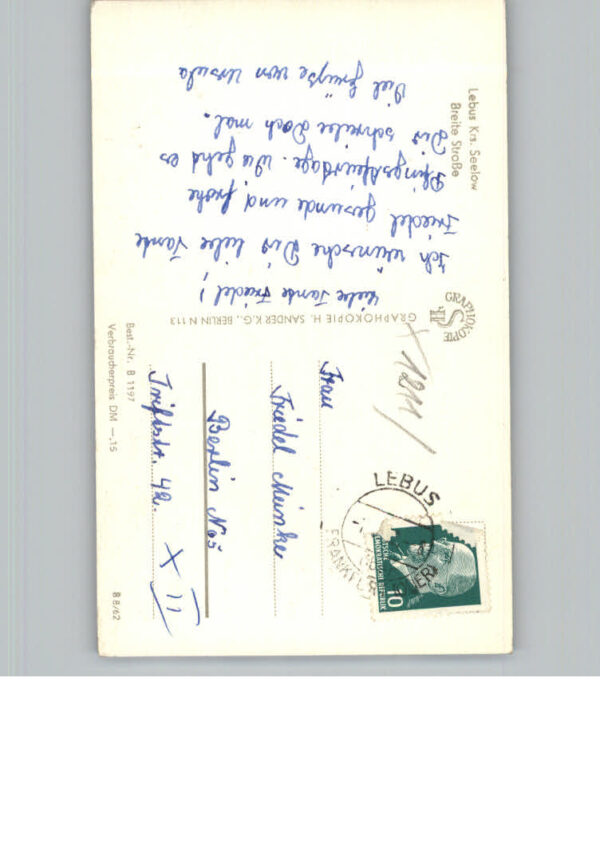 Lebus Krs. Seelow
Breite Straße
Liebe Tante Friedel!
Ich wünsche Dir liebe Tante
Friedel gesunde und frohe
Pfingstfeiertage. Wie geht es
Dir schreibe Doch mal.
Viel Grüße von Ursula
GRAPHOKOPIE
GRAPHOKOPIE H. SANDER K.G., BERLIN N 113
Best.-Nr. B 1197
Verbraucherpreis DM —,15
B 8/62
x 1211/
LEBUS
FRANKFU
10
DEMOKRATISCHE REPUBLIK
Frau
Friedel Meinke
Berlin
Triftstr. 42
X